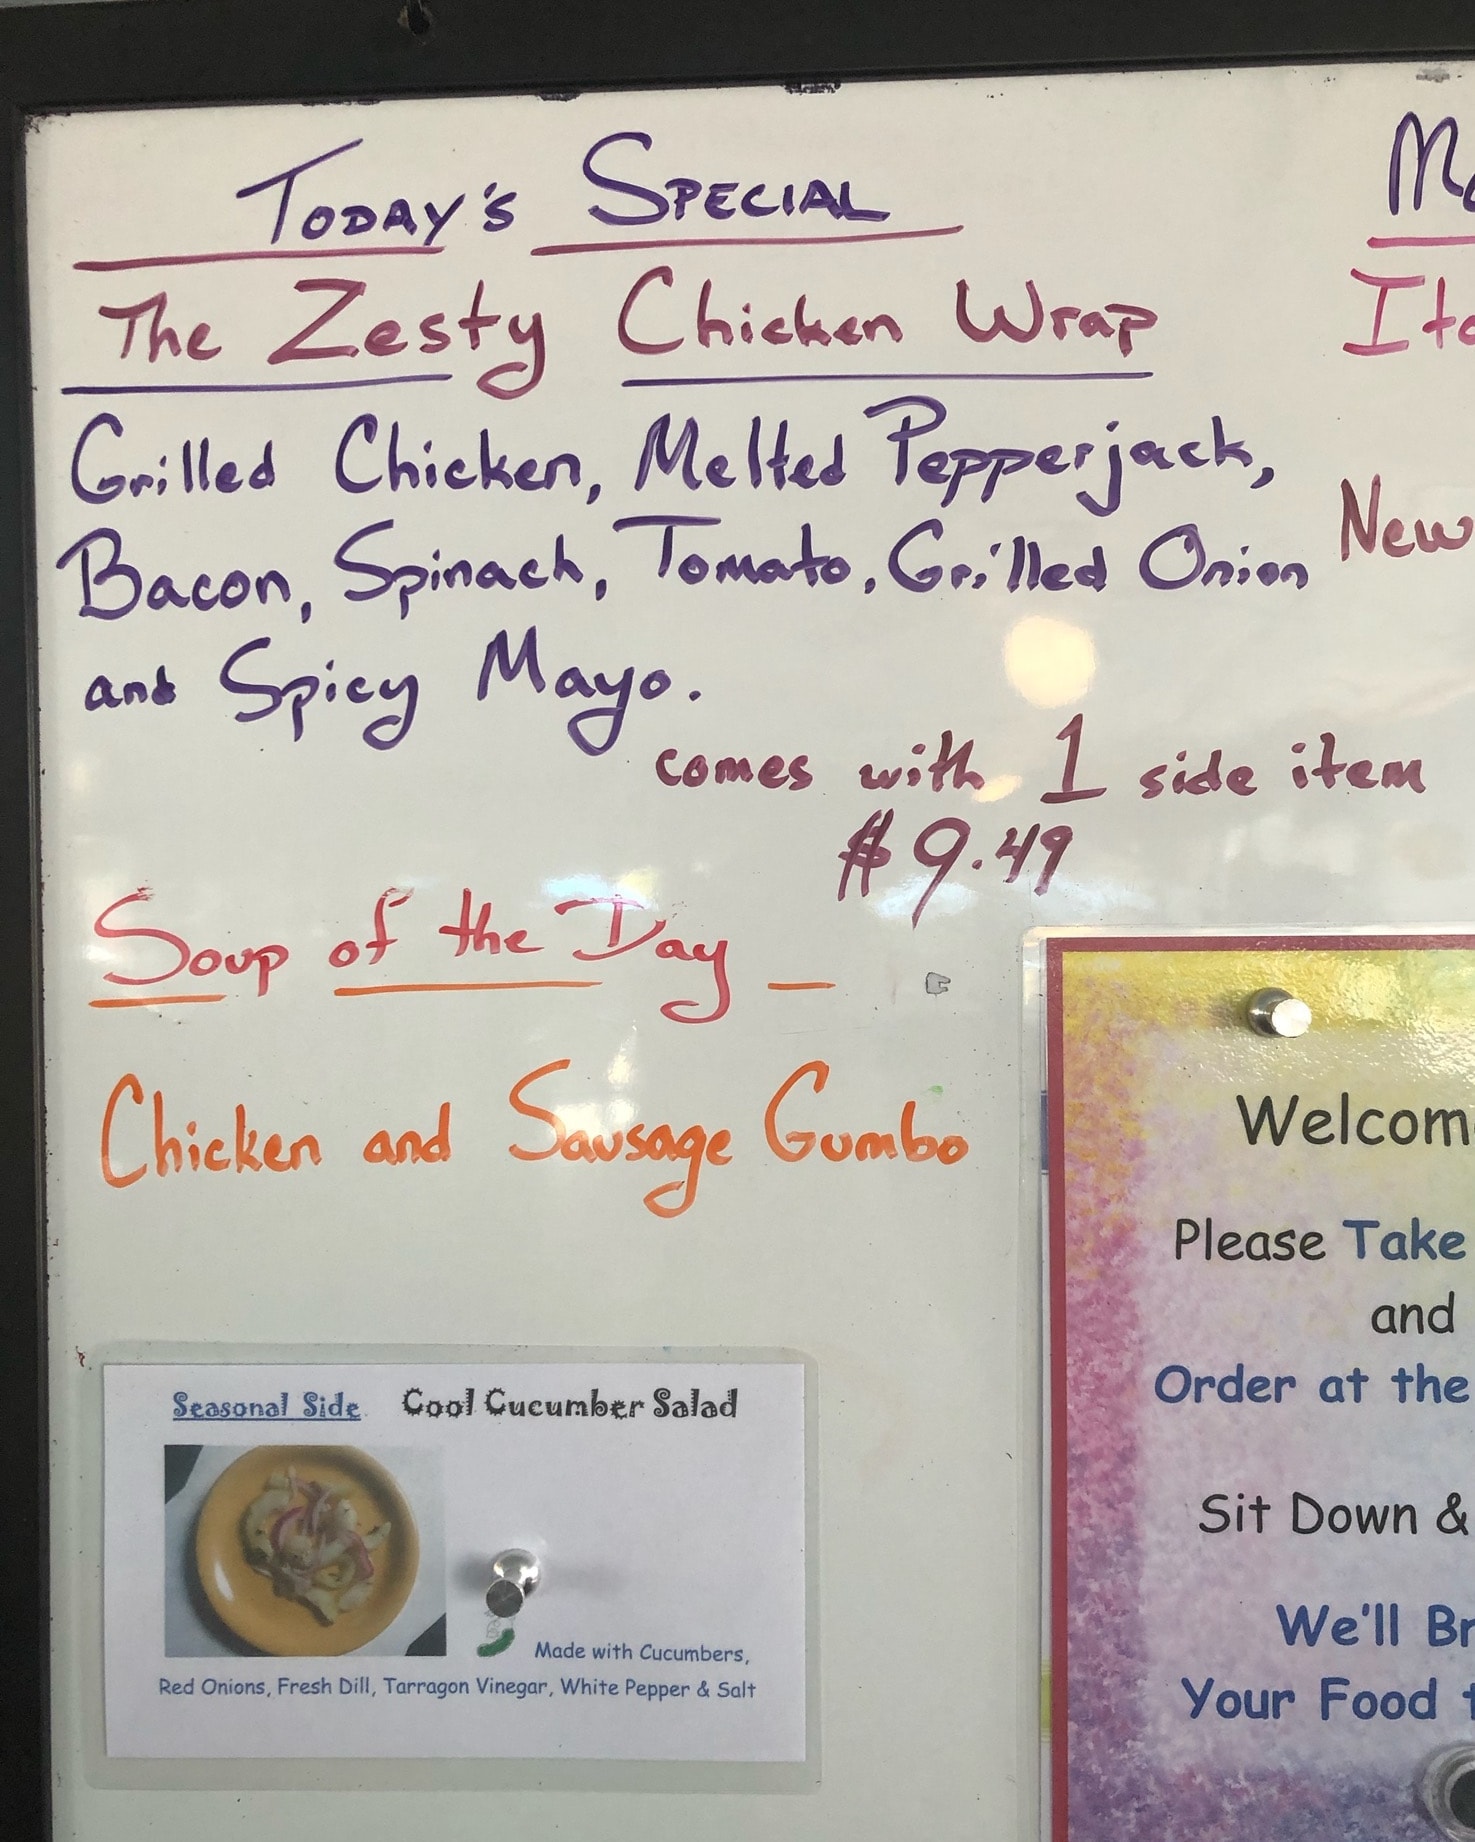 Today's Special
The Zesty Chicken Wrap
Grilled Chicken, Melted Pepperjack,
Bacon, Spinach, Tomato, Grilled Onion
and Spicy Mayo.
comes with 1 side item
$9.49
Soup of the Day
Chicken and Sausage Gumbo
Seasonal Side Cool Cucumber Salad
Made with Cucumbers,
Red Onions, Fresh Dill, Tarragon Vinegar, White Pepper & Salt
New
Welcom
Please Take
and
Order at the
Sit Down &
We'll Br
Your Food t